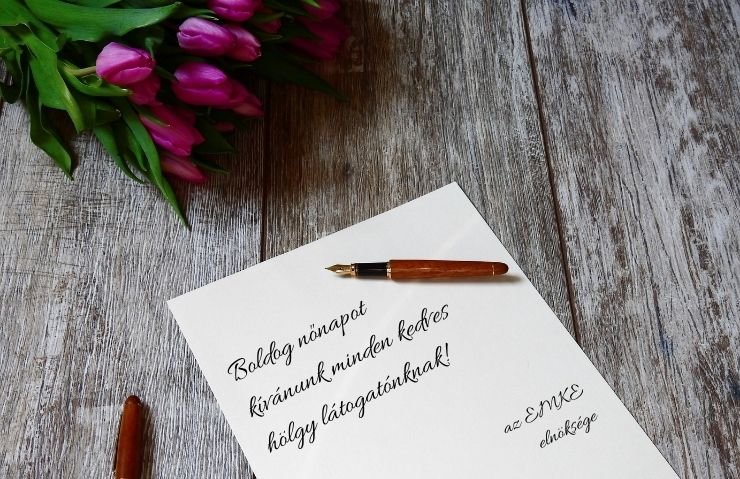 Boldog nőnapot
kívánunk minden kedves
hölgy látogatónknak!
az EMKE
elnöksége